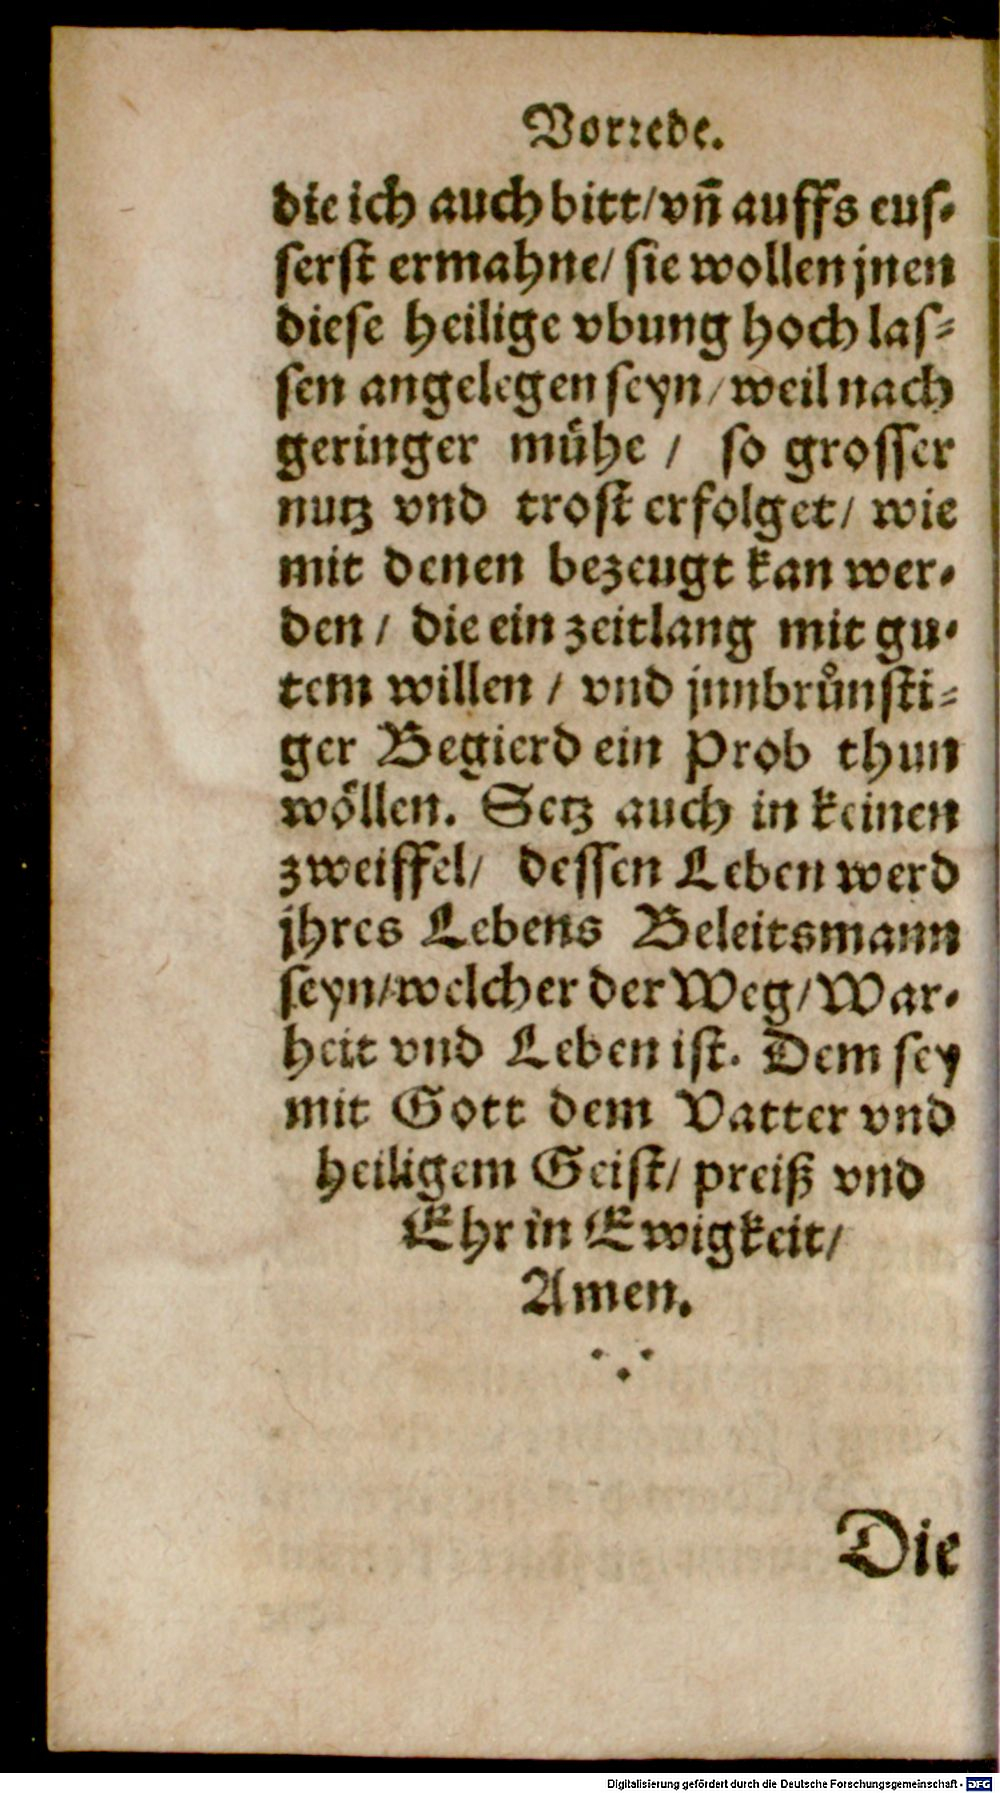 Vorrede.
die ich auch bitt/ vñ auffs eus-
serst ermahne/ sie wollen jnen
diese heilige vbung hoch las-
sen angelegen seyn/ weil nach
geringer mühe / so grosser
nutz vnd trost erfolget/ wie
mit denen bezeugt kan wer-
den / die ein zeitlang mit gu-
tem willen / vnd jnnbrůnsti-
ger Begierd ein Prob thun
wöllen. Setz auch in keinen
zweiffel/ dessen Leben werd
jhres Lebens Beleitsmann
seyn/ welcher der Weg/ War-
heit vnd Leben ist. Dem sey
mit Gott dem Vatter vnd
heiligem Geist/ preiß vnd
Ehr in Ewigkeit/
Amen.
Die
Digitalisierung gefördert durch die Deutsche Forschungsgemeinschaft - DFG